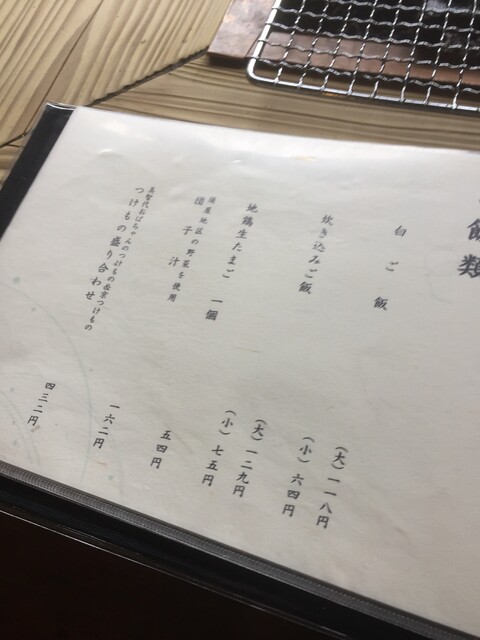 飯類
白ご飯
(大)一一八円
(小)六四円
炊き込みご飯
(大)一二九円
(小)七五円
地鶏生たまご 一個
五四円
地区の野菜を使用
団子汁
一六二円
おばちゃんのつけもの
つけもの盛り合わせ
四三二円